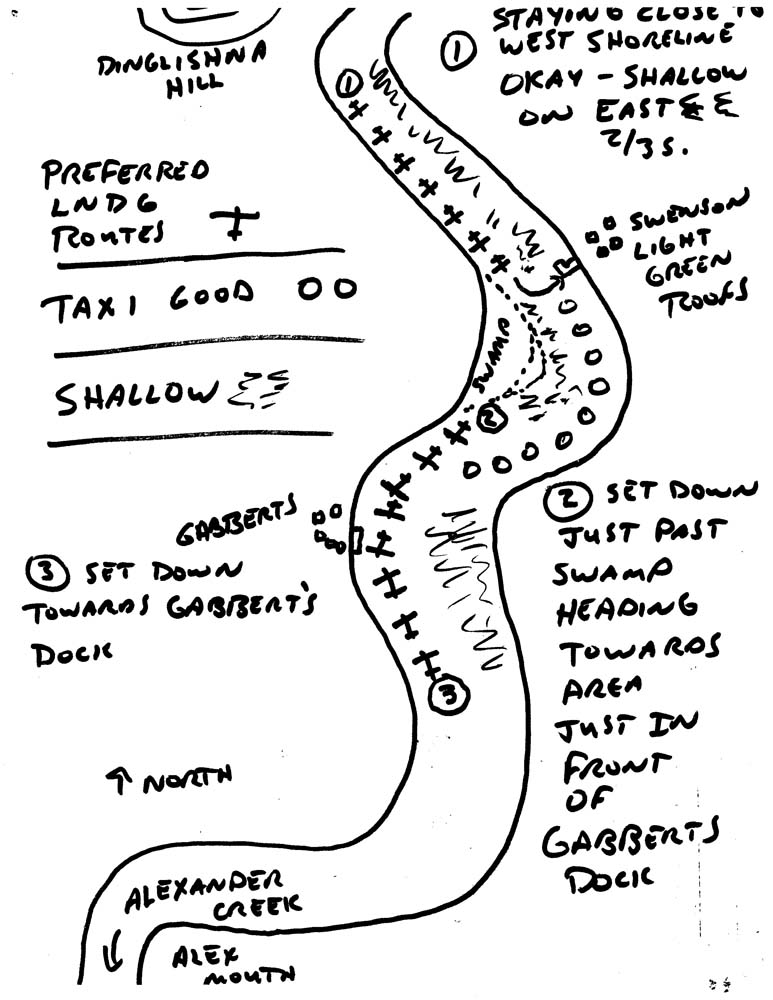 DINGLISHNA
HILL
①
① STAYING CLOSE TO
WEST SHORELINE
OKAY - SHALLOW
ON EAST
2/3S.
PREFERRED
LNDG
ROUTES
TAXI GOOD
SHALLOW
SWENSON
LIGHT
GREEN
ROOFS
SWAMP
②
GABBERTS
③ SET DOWN
TOWARDS GABBERT'S
DOCK
③
② SET DOWN
JUST PAST
SWAMP
HEADING
TOWARDS
AREA
JUST IN
FRONT
OF
GABBERTS
DOCK
↑ NORTH
ALEXANDER
CREEK
ALEX
MOUTH